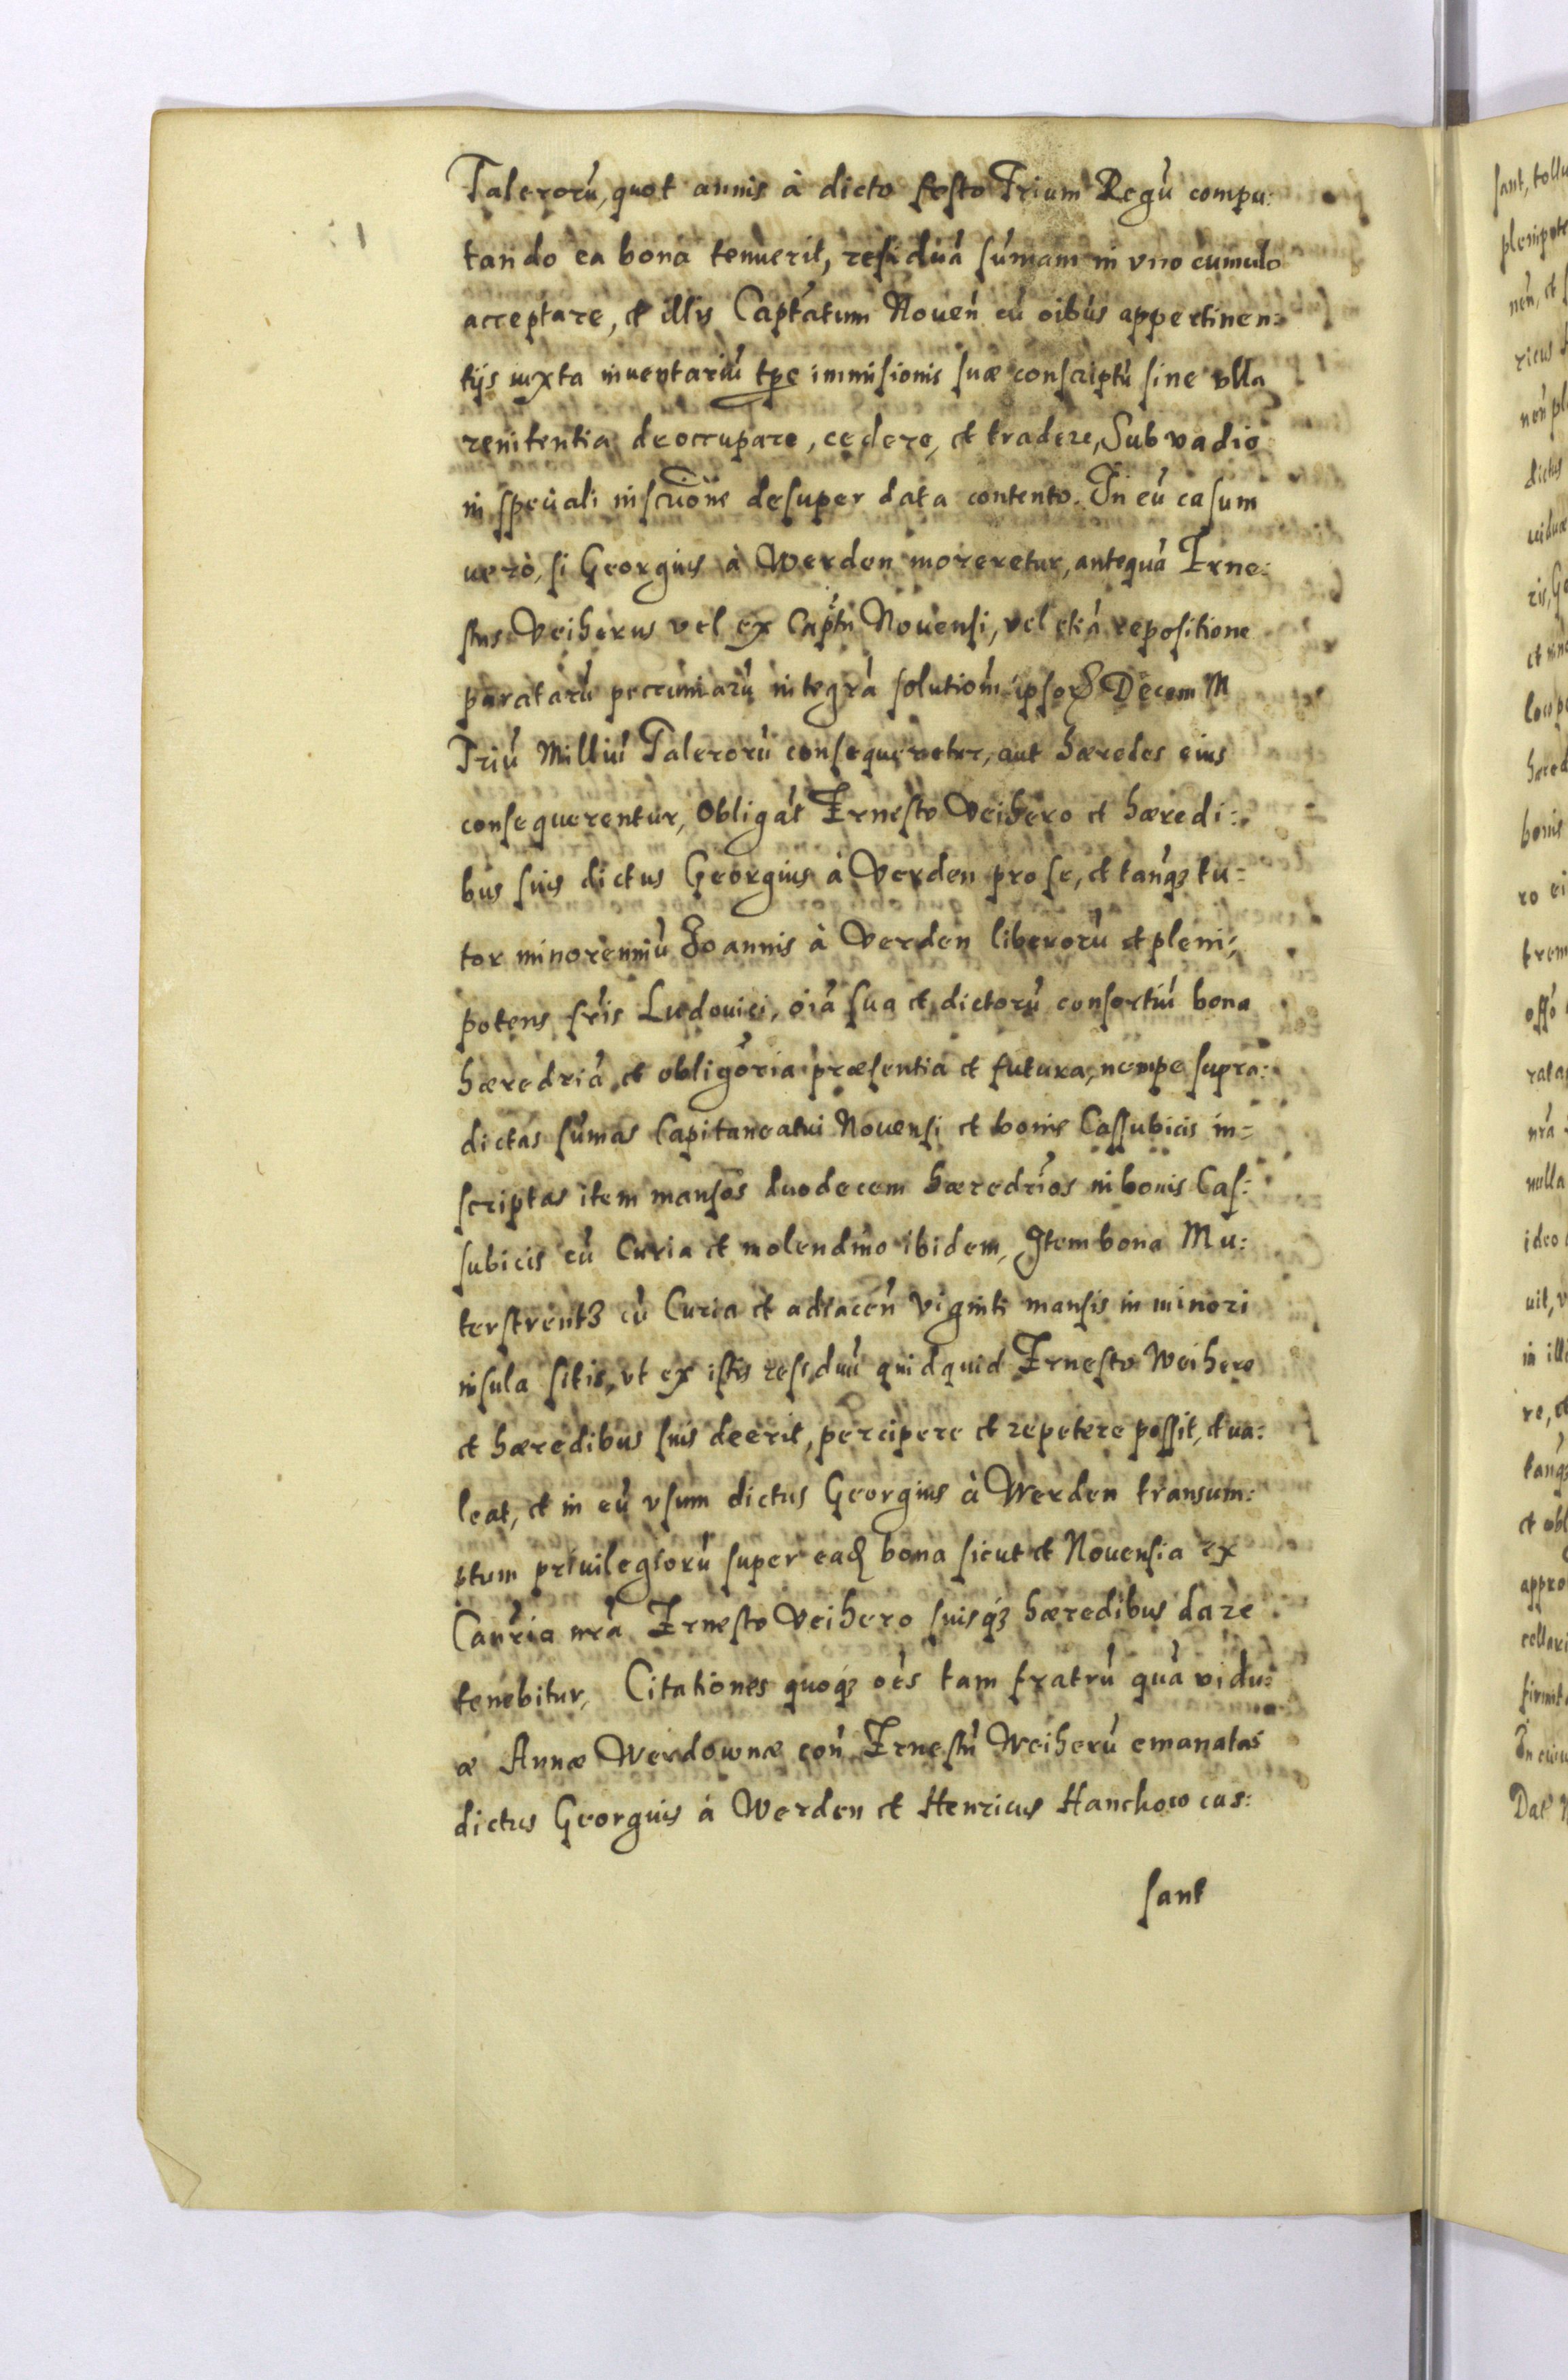 Taleroru̅, quot annis à dicto festo Trium Regu̅ compu:
tando ea bona tenuerit, residua̅ su̅mam in vno cumulo
acceptare, et illis Capt̅atum Nouen̅ cu̅ oi̅bus appertinen=
tijs iuxta inuentariu̅ tp̅e immisionis suæ conscriptu̅ sine vlla
renitentia deoccupare, cedere, et tradere, Sub vadio
in speciali inscri̅one desuper data contento. In eu̅ casum
uerò, si Georgius à Werden moreretur, antequa̅ Erne:
stus Veiherus vel ex Capt̅u Nouensi, vel etia̅ repositione
parataru̅ pecuniaru̅ integra̅ solutiom̅ ipsoꝝ Decem M
Triu̅ Milliu̅ Taleroru̅ consequeretur, aut hæredes eius
consequerentur, Obliga̅t Ernesto Veihero et hæredi:
bus suis dictus Georgius à Verden pro se, et tanqꝫ tu=
tor minorenniu̅ Joannis à Verden liberoru̅ et pleni:
potens fr̅is Ludouici, oi̅a sua et dictoru̅ consortiu̅ bona
hæredri̅a et obligo̅ria præsentia et futura, nempe supra:
dictas su̅mas Capitaneatui Nouensi et bonis Cassubicis in=
scriptas item mansos duodecem hæredri̅os in bonis Cas:
subicis cu̅ Curia et molendino ibidem, Item bona Mu:
terstrentz cu̅ Curia et adiacen̅ Viginti mansis in minori
insula sitis, vt ex istis residuu̅ quidquid Ernesto Weihero
et hæredibus suis deerit, percipere et repetere possit, et ua:
leat, et in eu̅ vsum dictus Georgius à Werden transum:
ptum priuilegioru̅ super ead̅ bona sicut et Nouensia ex
Can̅ria nr̅a Ernesto Veihero suisqꝫ hæredibus dare
tenebitur, Citationes quoqꝫ oe̅s tam fratru̅ qua̅ vidu:
æ Annæ Werdownæ con̅ Ernestu̅ Weiheru̅ emanatas
dictus Georgius à Werden et Henricus Hanckow cas:
sant